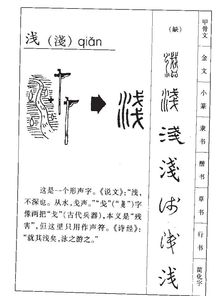 浅（淺）qiǎn
这是一个形声字。《说文》：“浅，
不深也。从水，戋声。”“戋”（“戔”）字
像两把“戈”（古代兵器），本义是“残
害”，但这里只用作声符。《诗经》：
“就其浅矣，泳之游之。”
（缺）
淺
淺
浅
浅
浅
甲骨文
金文
小篆
隶书
楷书
草书
行书
简化字